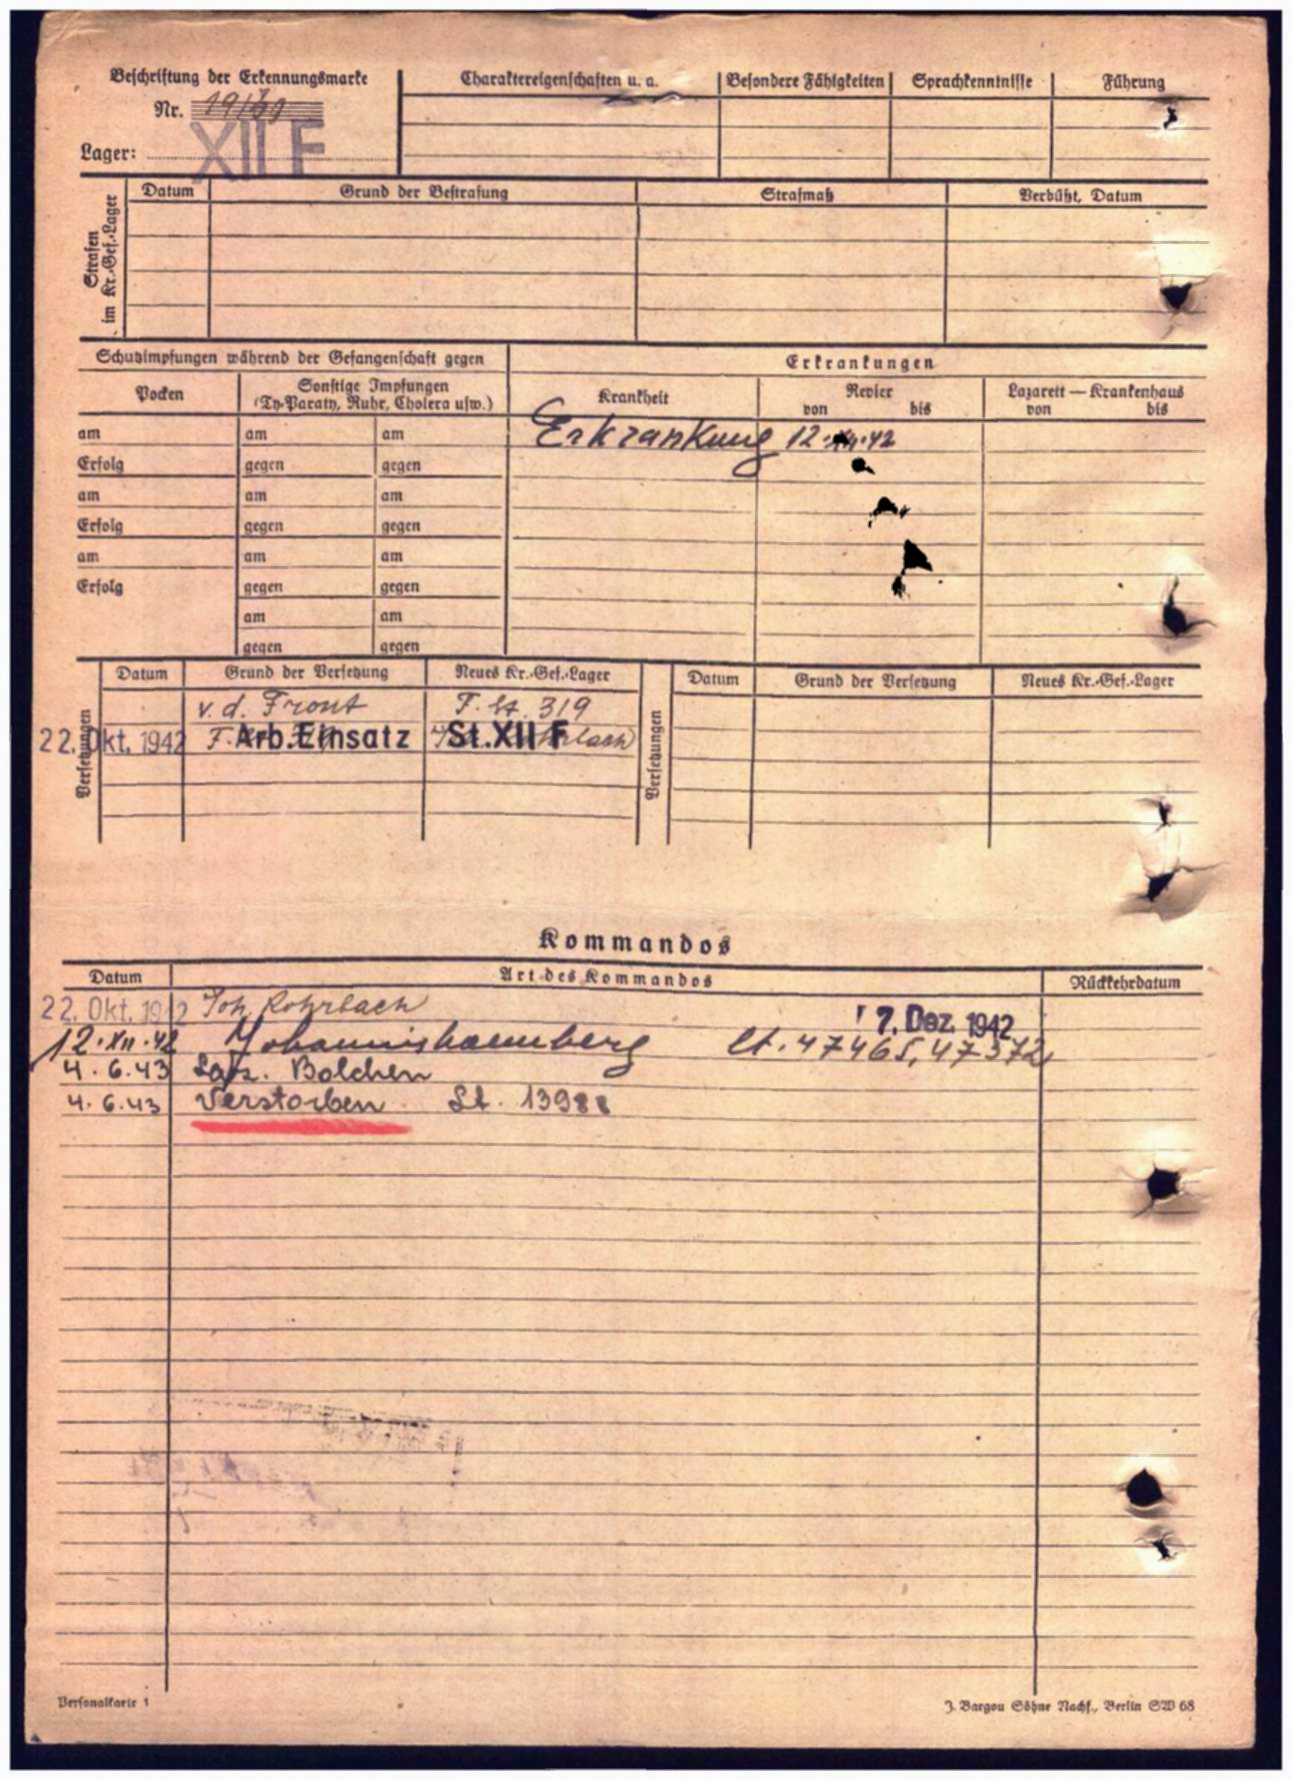 Beschriftung der Erkennungsmarke
Nr.
Lager: XII F
Charaktereigenschaften u. a. Besondere Fähigkeiten Sprachkenntnisse Führung
Strafen im Kr.-Gef.-Lager
Datum Grund der Bestrafung Strafmaß Verbüßt, Datum
Schutzimpfungen während der Gefangenschaft gegen Erkrankungen
Pocken Sonstige Impfungen Krankheit Revier Lazarett — Krankenhaus
(Ty-Paraty, Ruhr, Cholera usw.) von bis von bis
am am am Erkrankung 12.XII.42
Erfolg gegen gegen
am am am
Erfolg gegen gegen
am am am
Erfolg gegen gegen
am am
gegen gegen
Versetzungen
Datum Grund der Versetzung Neues Kr.-Gef.-Lager
v. d. Front F. St. 319
22. Okt. 1942 Arb. Einsatz St. XII F
Versetzungen
Datum Grund der Versetzung Neues Kr.-Gef.-Lager
Kommandos
Datum Art des Kommandos Rückkehrdatum
22. Okt. 1942 Joh. Rohrbach 7. Dez. 1942
12.XII.42 47465, 47372
4.6.43 Laz. Bolchen
4.6.43 Verstorben St. 13988
Personalkarte 1
J. Bargou Söhne Nachf., Berlin SW 68